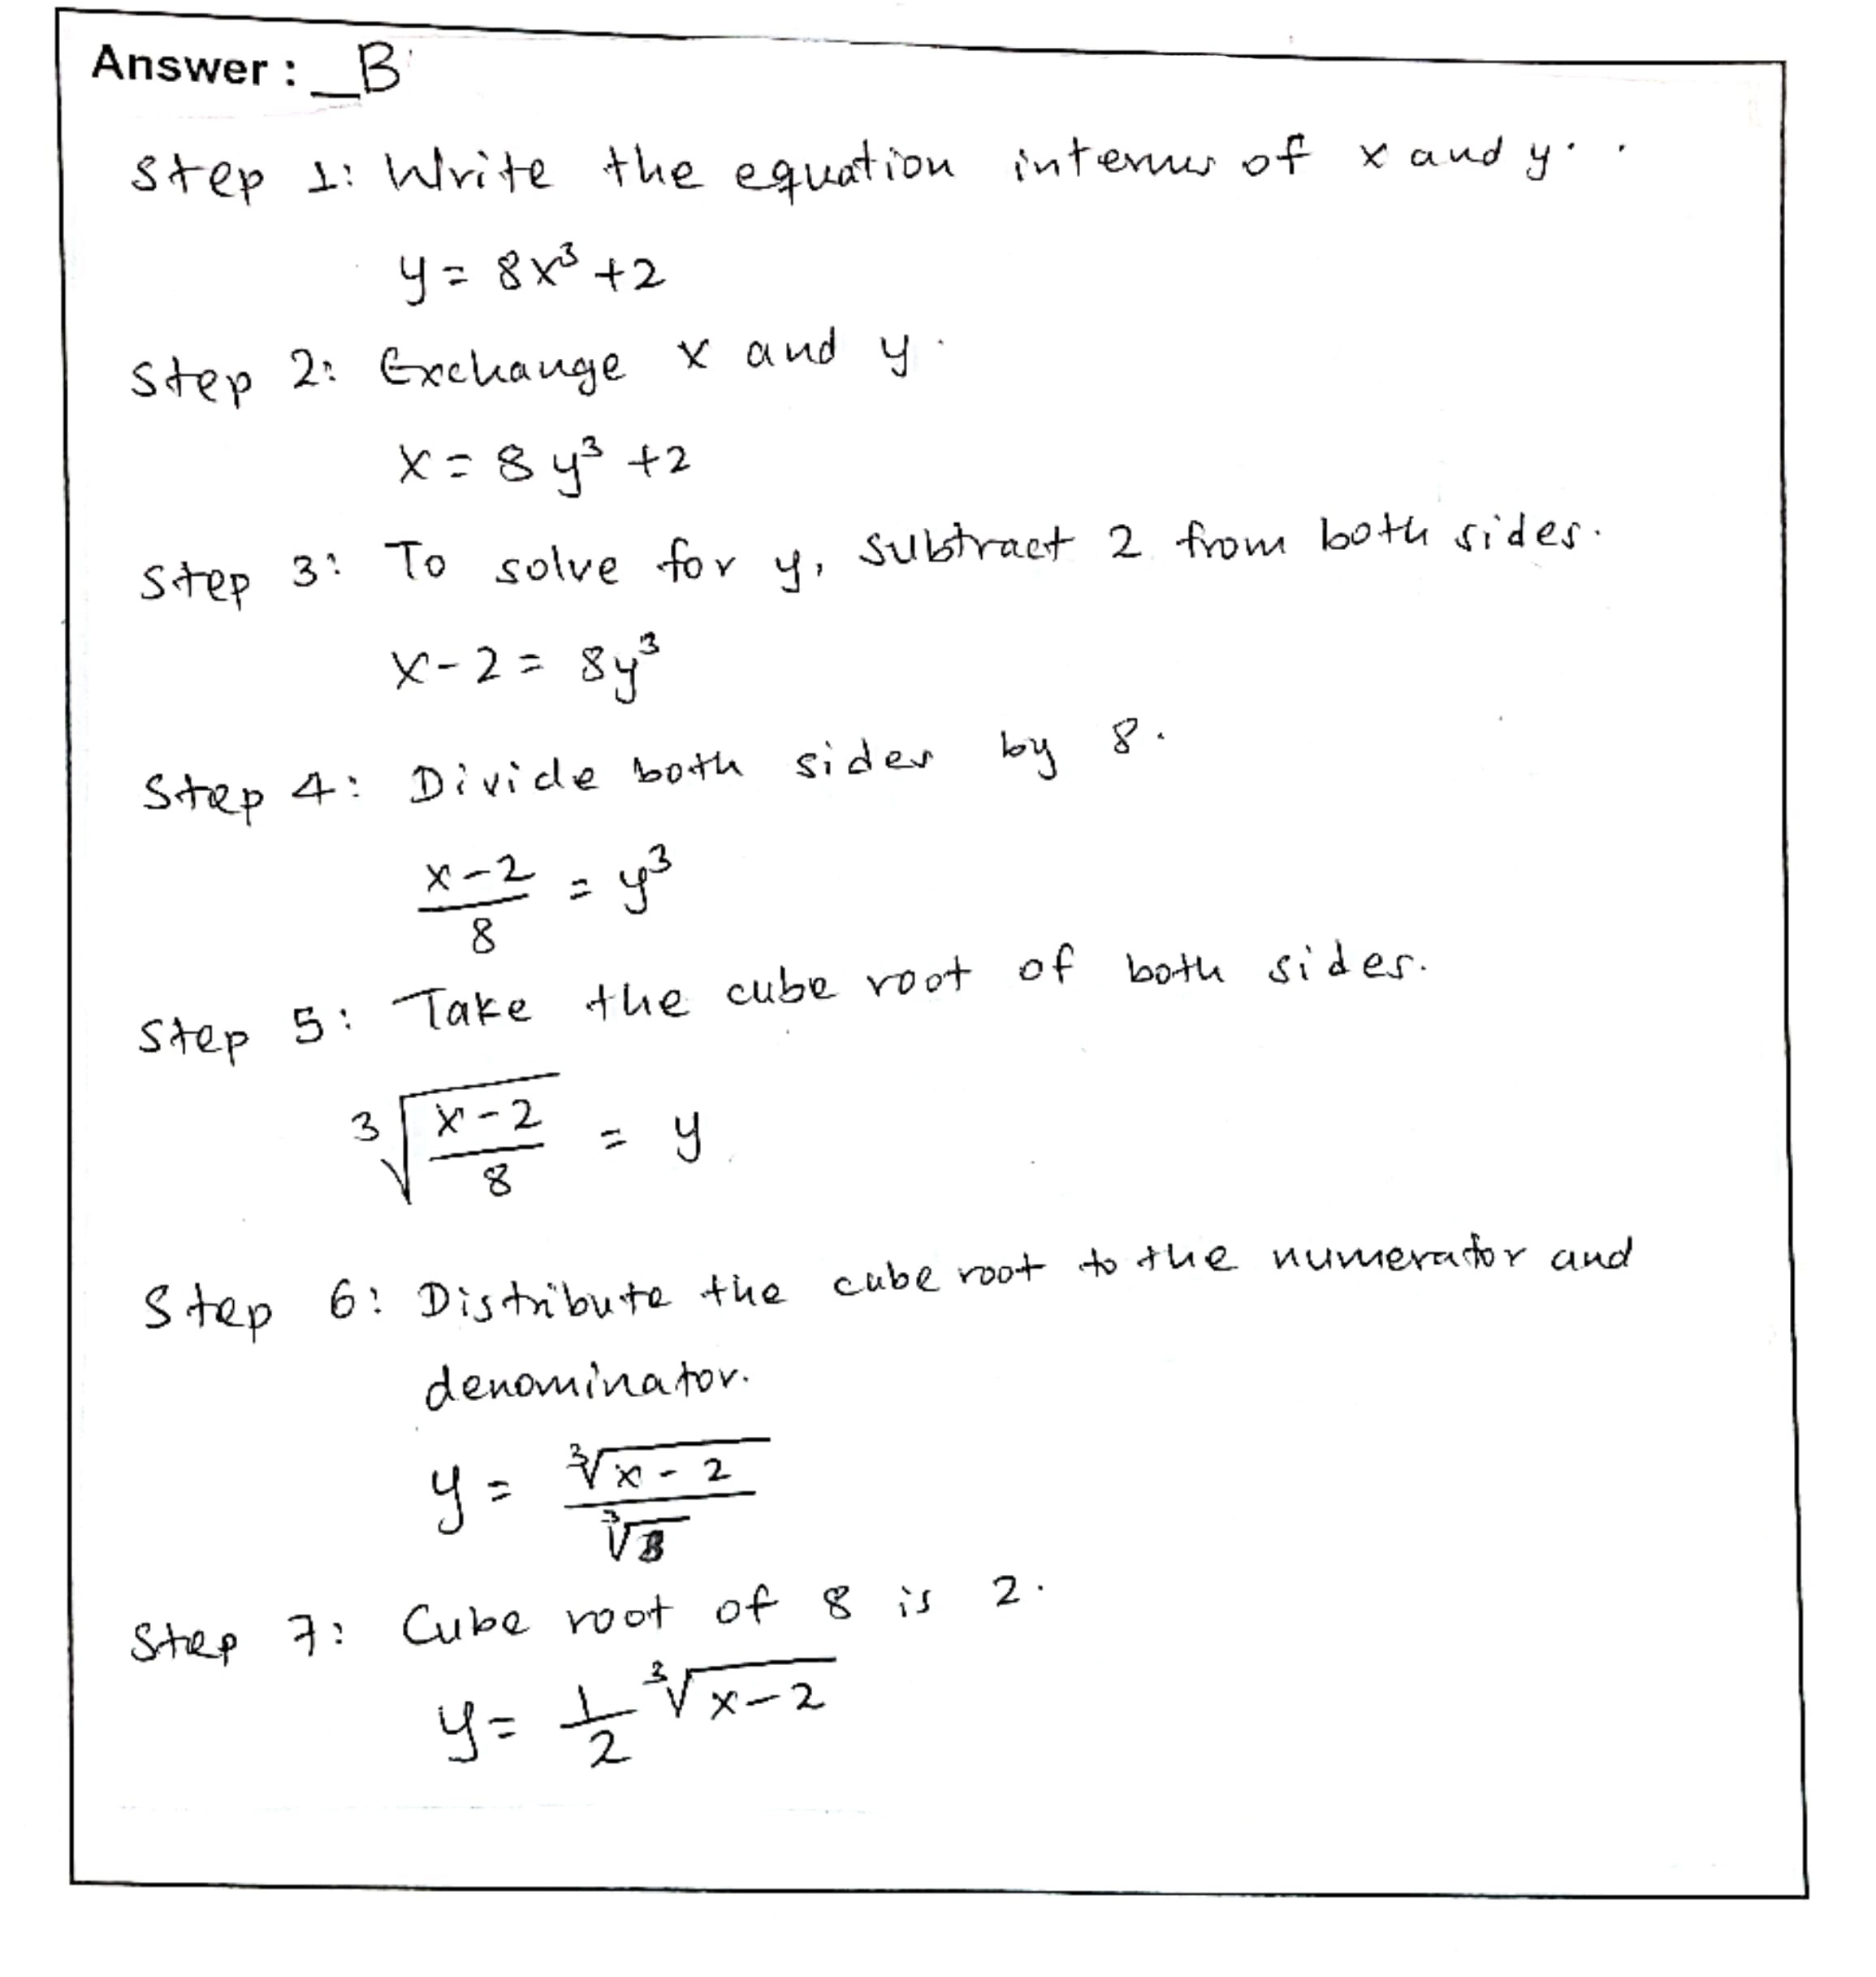 Answer : _B
Step 1: Write the equation interms of x and y.
y = 8x³ + 2
Step 2: Exchange x and y.
x = 8y³ + 2
Step 3: To solve for y, subtract 2 from both sides.
x - 2 = 8y³
Step 4: Divide both sides by 8.
(x - 2)/8 = y³
Step 5: Take the cube root of both sides.
∛((x - 2)/8) = y
Step 6: Distribute the cube root to the numerator and
denominator.
y = ∛(x - 2)/∛8
Step 7: Cube root of 8 is 2.
y = 1/2 ∛(x - 2)